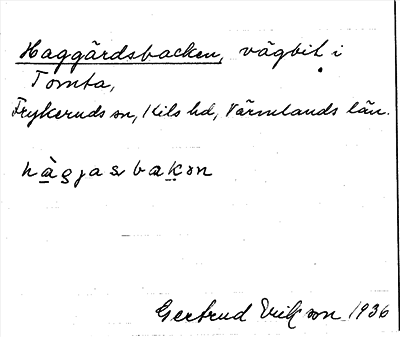 Haggårdsbacken, vägbit i
Tomta,
Frykeruds sn, Kils hd, Värmlands län.
hàgjasbakən
Gertrud Erikson 1936